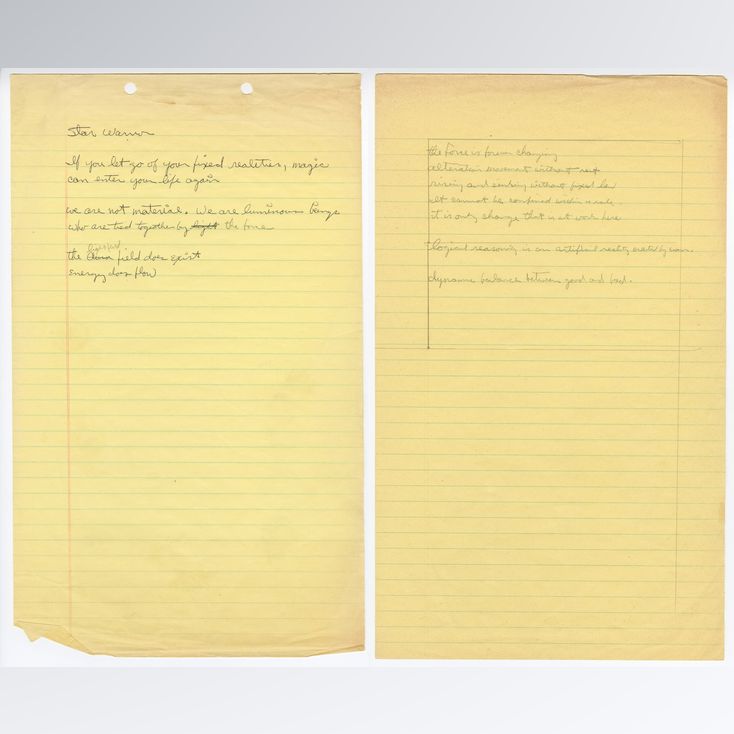 Star Warrior
If you let go of your fixed realities, magic
can enter your life again
we are not material. We are luminous beings
who are tied together by light the force
the field does exist
energy does flow
the Force is forever changing
alteration movement without rest
rising and sinking without fixed law
It cannot be confined within a rule
it is only change that is at work here
Logical reasoning is an artificial reality created by man.
dynamic balance between good and bad.